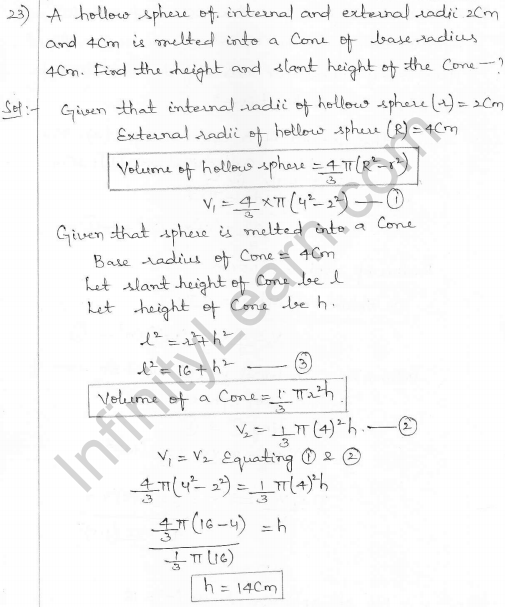 23) A hollow sphere of internal and external radii 2Cm
and 4Cm is melted into a Cone of base radius
4Cm. Find the height and slant height of the Cone—?
Sol:- Given that internal radii of hollow sphere (r) = 2Cm
External radii of hollow sphere (R) = 4Cm
Volume of hollow sphere = 4/3 π(R²-r²)
V₁ = 4/3 × π (4²-2²) — ①
Given that sphere is melted into a Cone
Base radius of Cone = 4Cm
Let slant height of Cone be l
Let height of Cone be h.
l² = r² + h²
l² = 16 + h² — ③
Volume of a Cone = 1/3 πr²h
V₂ = 1/3 π (4)² h. — ②
V₁ = V₂ Equating ① & ②
4/3 π(4²-2²) = 1/3 π(4)² h
4/3 π(16-4) / 1/3 π(16) = h
h = 14Cm
InfinityLearn.com